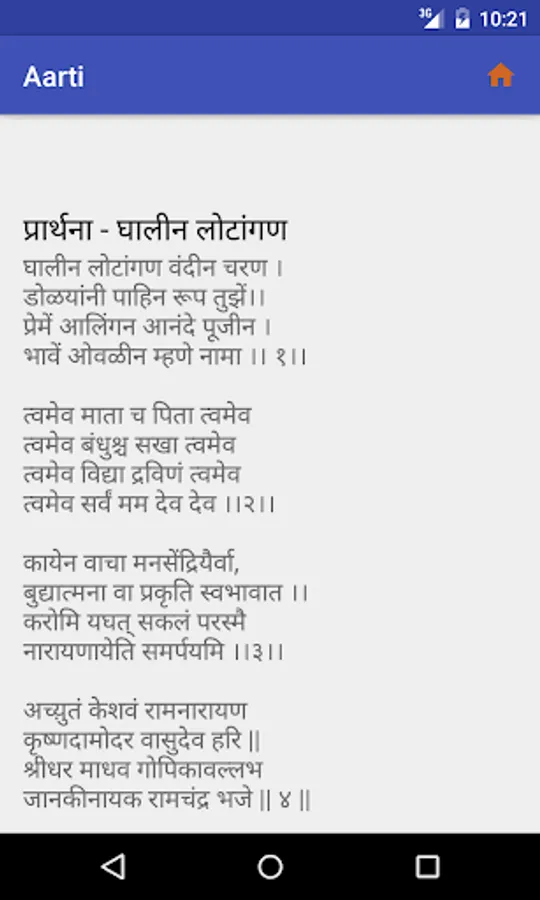 3G 10:21
Aarti
प्रार्थना - घालीन लोटांगण
घालीन लोटांगण वंदीन चरण ।
डोळयांनी पाहिन रूप तुझें।।
प्रेमें आलिंगन आनंदे पूजीन ।
भावें ओवळीन म्हणे नामा ।। १।।
त्वमेव माता च पिता त्वमेव
त्वमेव बंधुश्च सखा त्वमेव
त्वमेव विद्या द्रविणं त्वमेव
त्वमेव सर्वं मम देव देव ।।२।।
कायेन वाचा मनसेंद्रियैर्वा,
बुद्यात्मना वा प्रकृति स्वभावात ।।
करोमि यघत् सकलं परस्मै
नारायणायेति समर्पयमि ।।३।।
अच्युतं केशवं रामनारायण
कृष्णदामोदर वासुदेव हरि ||
श्रीधर माधव गोपिकावल्लभ
जानकीनायक रामचंद्र भजे || ४ ||